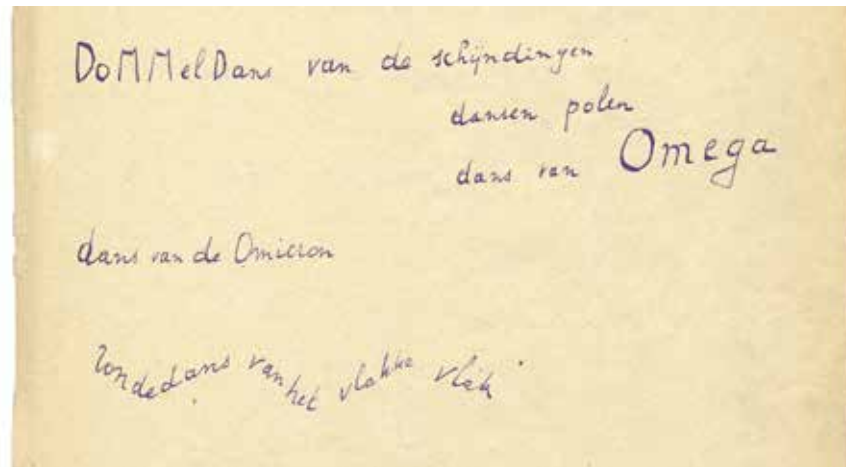 DoMMelDans van de schijndingen
dansen polen
dans van Omega
dans van de Omicron
Rondedans van het vlakke vlak